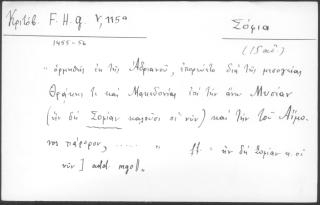 Κριτόβ. F. H. g. V, 115a
Σόφια
1455-56
(15 αἰ)
"ὁρμηθεὶς ἐκ τῆς Ἀδριανοῦ, ἐπορεύετο διὰ τῆς μεσογείας
Θρᾴκης τε καὶ Μακεδονίας ἐπὶ τὴν ἄνω Μυσίαν
(ἣν δὴ Σοφίαν καλοῦσι οἱ νῦν) καὶ τὴν τοῦ Αἵμο-
νος πάροδον, ...... " ff = ἣν δὴ Σοφίαν κ. οἱ
νῦν ] add. mg